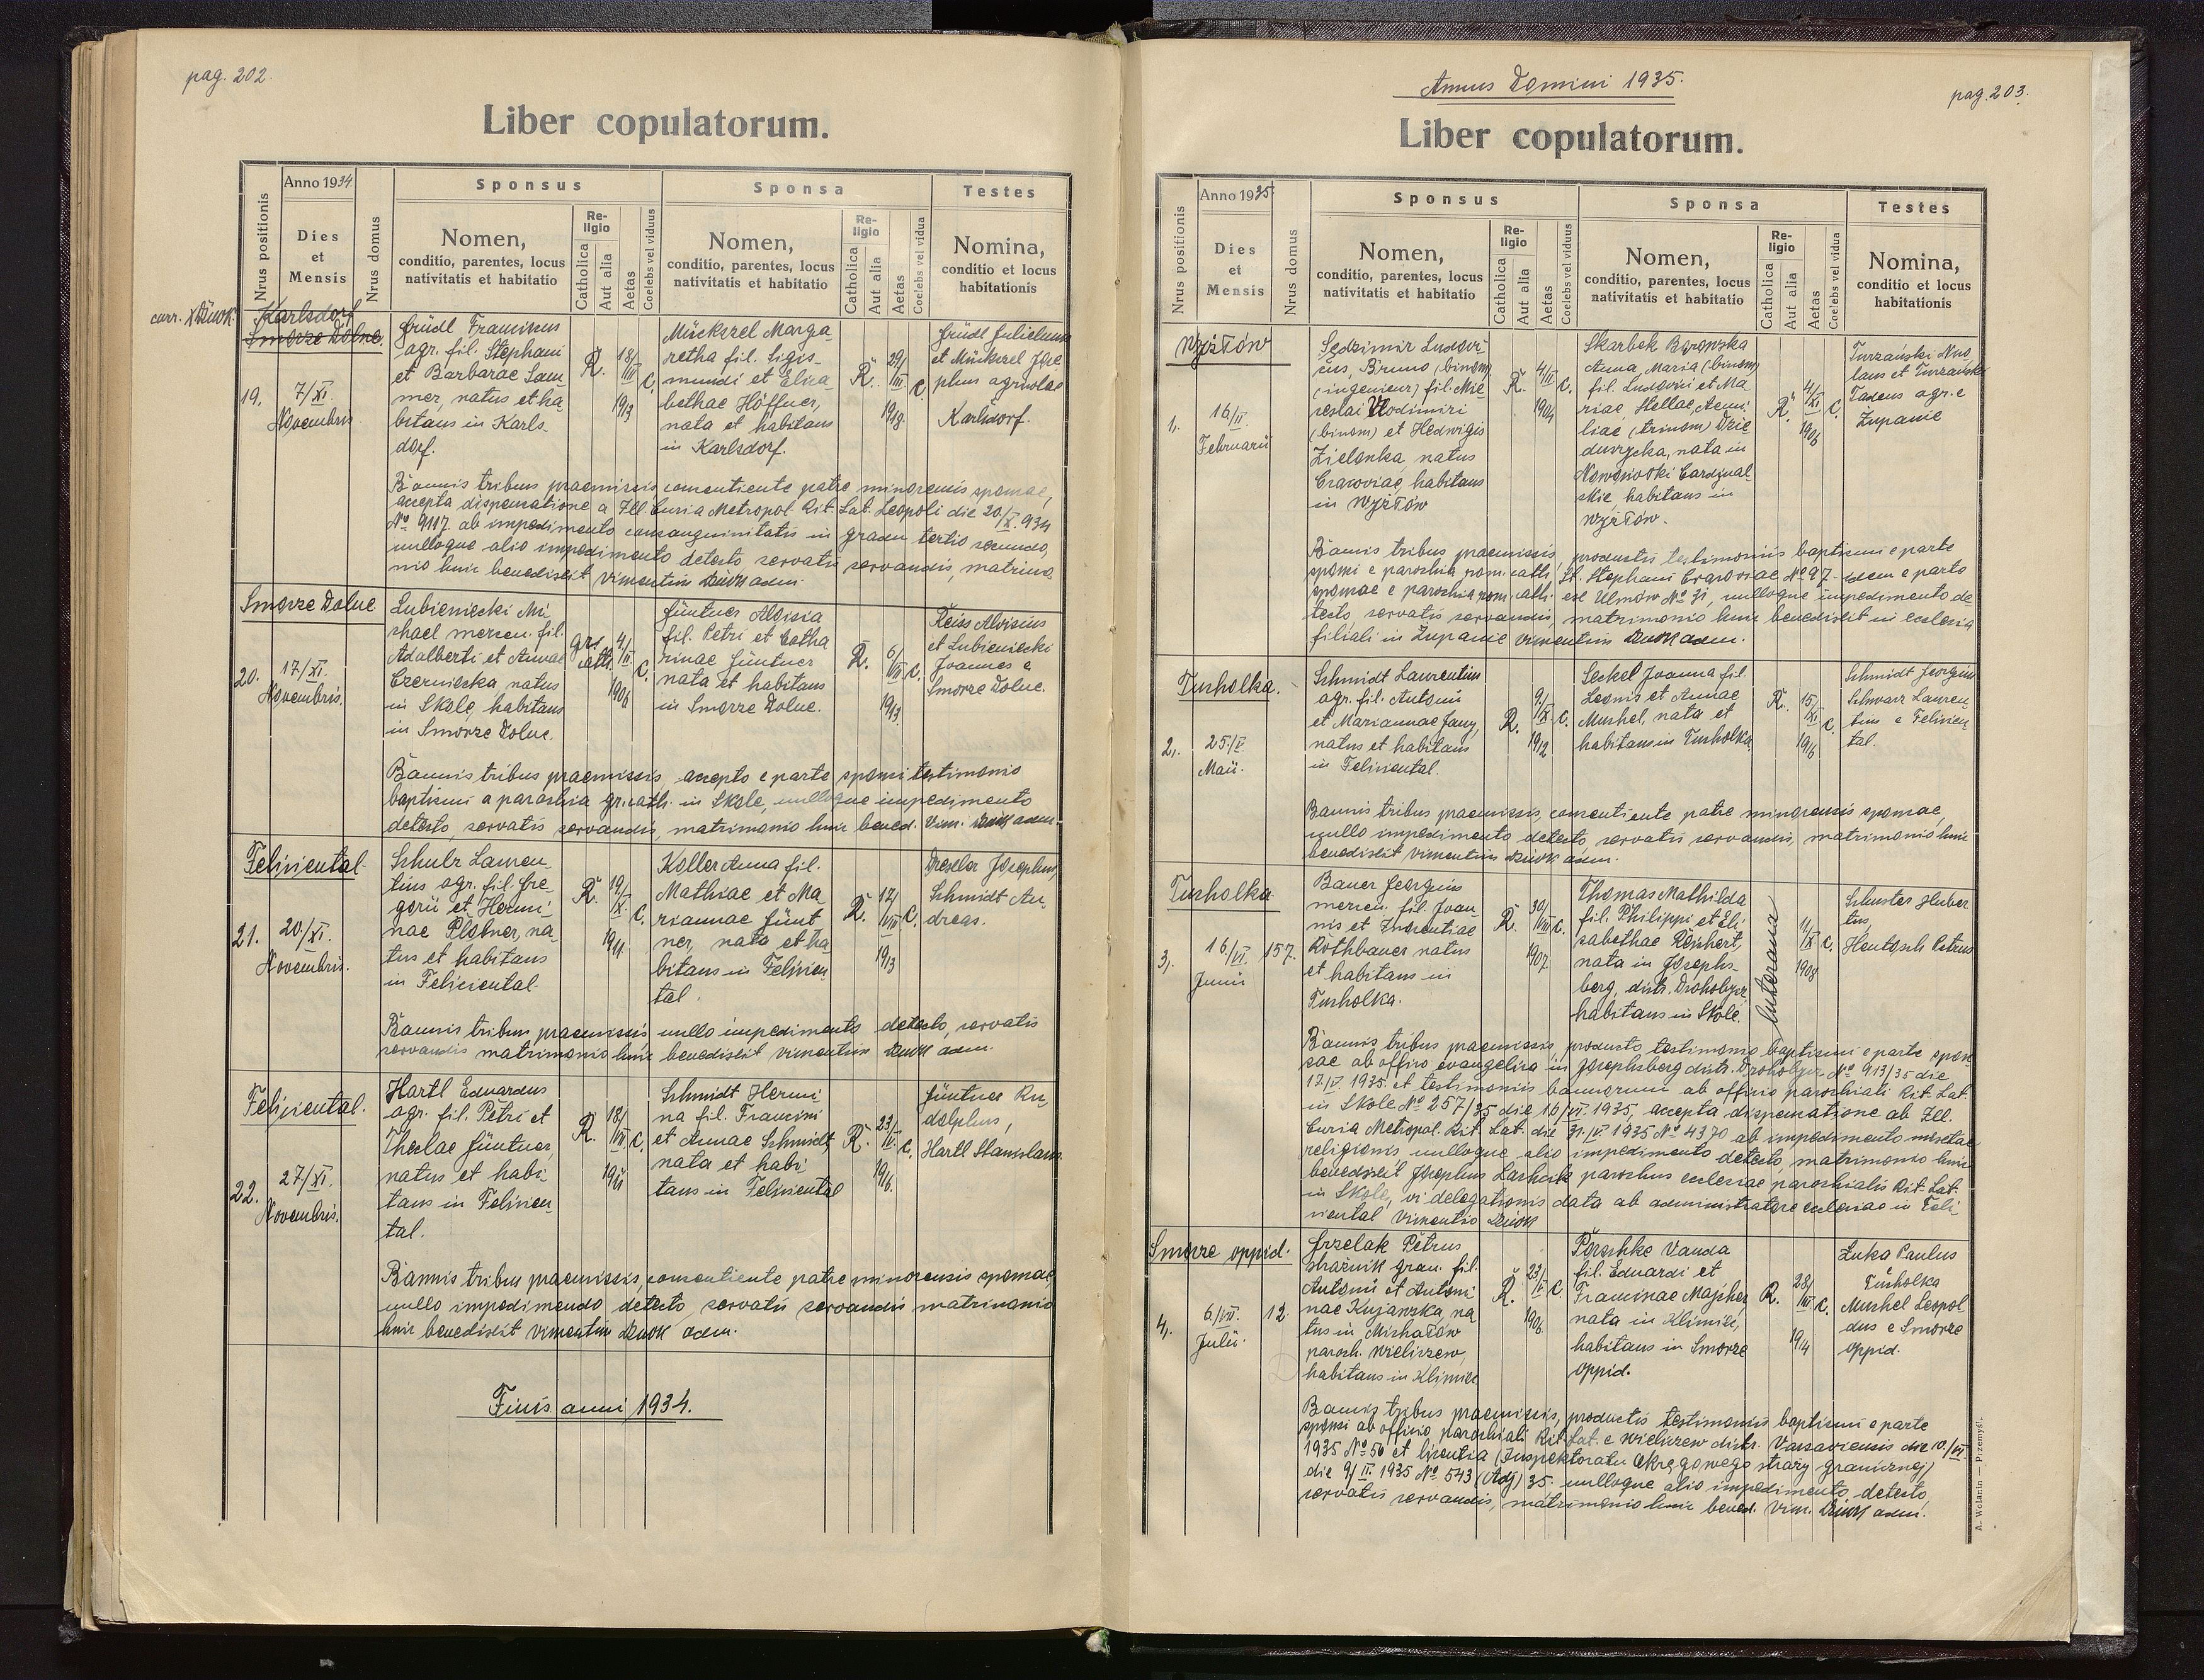 pag. 202.
Liber copulatorum.
Nrus positionis
Anno 1934.
Dies
et
Mensis
Nrus domus
Sponsus
Nomen,
conditio, parentes, locus
nativitatis et habitatio
Re-
ligio
Catholica
Aut alia
Aetas
Coelebs vel viduus
Sponsa
Nomen,
conditio, parentes, locus
nativitatis et habitatio
Re-
ligio
Catholica
Aut alia
Aetas
Coelebs vel vidua
Testes
Nomina,
conditio et locus
habitationis
Karlsdorf
Smorze Dolne.
19.
7/XI.
Novembris
Gründl Franciscus
agr. fil. Stephani
et Barbarae Sam-
mer, natus et ha-
bitans in Karls-
dorf.
R.
18/
III
1913
C.
Mückszel Marga-
retha fil. Sigis-
mundi et Elisa-
bethae Höffner,
nata et habitans
in Karlsdorf.
R.
29/
III
C.
Karlsdorf.
Bannis tribus praemissis, consentiente patre minorensis sponsae,
accepta dispensatione a Ill. Curia Metropol. Rit. Lat. Leopoli die 20/X. 934
No 9117 ab impedimento consanguinitatis in gradu tertio secundo,
nulloque alio impedimento detecto, servatis servandis, matrimo-
nio huic benedixit Vincentius Dziok adm.
Smorze Dolne
20.
17/XI.
Novembris.
Lubieniecki Mi-
chael mercen. fil.
Adalberti et Annae
Czerniecka natus
in Skole, habitans
in Smorze Dolne.
4/
II
1906
C.
Güntner Aloisia
fil. Petri et Catha
rinae Güntner
nata et habitans
in Smorze Dolne.
R.
6/
VII
1913.
C.
Reiss Aloisius
et Lubieniecki
Joannes e
Smorze Dolne.
Bannis tribus praemissis, accepto e parte sponsi testimonio
baptismi a parochia gr. cath. in Skole, nulloque impedimento
detecto, servatis servandis, matrimonio huic bened. Vinc. Dziok adm.
Feliciental.
21.
20/XI.
Novembris.
Schulz Lauren-
tius agr. fil. Gre-
gorii et Hermi-
nae Plobner, na-
tus et habitans
in Feliciental.
R.
19/
IX
1911
C.
Koller Anna fil.
Mathiae et Ma-
riannae Günt-
ner, nata et ha-
bitans in Felicien-
tal.
R.
17/
VII
1913
C.
Drexler Josephus,
Schmidt An-
dreas.
Bannis tribus praemissis, nullo impedimento detecto, servatis
servandis matrimonio huic benedixit Vincentius Dziok adm.
Feliciental.
22.
27/XI.
Novembris.
Hartl Eduardus
agr. fil. Petri et
Theclae Güntner,
natus et habi-
tans in Felicien-
tal.
R.
18/
VII
1911
C.
Schmidt Hermi-
na fil. Francisci
et Annae Schmidt,
nata et habi-
tans in Feliciental
R.
23/
IV
1916.
C.
Güntner Ru-
dolphus,
Hartl Stanislaus
Bannis tribus praemissis, consentiente patre minorensis sponsae
nullo impedimendo detecto, servatis servandis matrimonio
huic benedixit Vincentius Dziok adm.
Finis anni 1934.
Annus Domini 1935.
pag. 203.
Liber copulatorum.
Nrus positionis
Anno 1935
Dies
et
Mensis
Nrus domus
Sponsus
Nomen,
conditio, parentes, locus
nativitatis et habitatio
Re-
ligio
Catholica
Aut alia
Aetas
Coelebs vel viduus
Sponsa
Nomen,
conditio, parentes, locus
nativitatis et habitatio
Re-
ligio
Catholica
Aut alia
Aetas
Coelebs vel vidua
Testes
Nomina,
conditio et locus
habitationis
Wyżłów
1.
16/II.
Februarii
Sędzimir Ludovi-
cus, Bruno (binom)
(ingenieur) fil. Mie-
ceslai Vlodimiri
(binom) et Hedwigis
Zielonka, natus
Cracoviae, habitans
in Wyżłów
R.
4/
II
1904
C.
Skarbek Borowska
Anna, Maria (binom)
fil. Ludovici et Ma-
riae, Stellae, Aemi-
liae (trinom) Dzie-
duszycka, nata in
habitans in
Wyżłów.
R.
4/
XI
1906
C.
Turzański Nico-
laus et Turzański
Tadeus agr. e
Żupanie
Bannis tribus praemissis, productis testimoniis baptismi e parte
sponsi e parochia rom. cath. St. Stephani Cracoviae No 97 - idem e parte
sponsae e parochia rom. cath. ex Ulmów No 31, nulloque impedimento de-
tecto, servatis servandis, matrimonio huic benedixit in ecclesia
filiali in Żupanie Vincentius Dziok adm.
Tucholka.
2.
25./V.
Maii.
Schmidt Laurentius
agr. fil. Antonii
et Mariannae Jany,
natus et habitans
in Feliciental.
R.
9/
IX
1912
C.
Seckel Joanna fil.
Leonis et Annae
Muschel, nata et
habitans in Tucholka.
R.
15/
XI
1916
C.
Schmidt Georgius
Schwarz Lauren-
tius e Felicien-
tal.
Bannis tribus praemissis, consentiente patre minorensis sponsae,
nullo impedimento detecto, servatis servandis, matrimonio huic
benedixit Vincentius Dziok adm.
Tucholka
3.
16/VI.
Junii
157.
Bauer Georgius
mercen. fil. Joan-
nis et Inocentiae
Rothbauer natus
et habitans in
Tucholka.
R.
30/
VIII
1907.
C.
Thomas Mathilda
fil. Philippi et Eli-
sabethae Reichert,
nata in Josephs-
berg, distr. Drohobycz,
habitans in Skole.
luterana
11/
IX
1908
C.
Schuster Huber
tus,
Hentosch Petrus
Bannis tribus praemissis, producto testimonio baptismi e parte spon-
sae ab officio evangelico in Josephsberg distr. Drohobycz No 913/35 die
17/V. 1935. et testimoniis bannorum ab officio parochiali Rit. Lat.
in Skole No 257/35 die 16/VI. 1935, accepta dispensatione ab Ill.
Curia Metropol. Rit. Lat. die 31./V. 1935 No 4370 ab impedimento mixtae
religionis nulloque alio impedimento detecto, matrimonio huic
benedixit Josephus parochus ecclesiae parochialis Rit. Lat.
in Skole, vi delegationis data ab administratore ecclesiae in Feli-
ciental Vincentio Dziok
Smorze oppid.
4.
6/VII.
Julii.
12.
Grzelak Petrus
strażnik gran. fil.
Antonii et Antoni-
nae Kujawska, na-
tus in Michałów
paroch. Wieliszew,
habitans in Klimiec
R.
23/
1906
C.
Poeschke Vanda
fil. Eduardi et
Franciscae Majcher
nata in Klimiec,
habitans in Smorze
oppid.
R.
28/
III
1914
C.
Łuka Paulus
e Tucholka
Muschel Leopol-
dus e Smorze
oppid.
Bannis tribus praemissis, productis testimoniis baptismi e parte
sponsi ab officio parochiali Rit. Lat. e Wieliszew distr. Varsaviensis die 10./VI.
1935 No 50 et licentia (Inspektoratu Okręgowego straży granicznej)
die 9/II. 1935 No 543 (Adj) 35. nulloque alio impedimento detecto,
servatis servandis, matrimonio huic bened. Vinc. Dziok adm.
A. Welanin — Przemyśl.